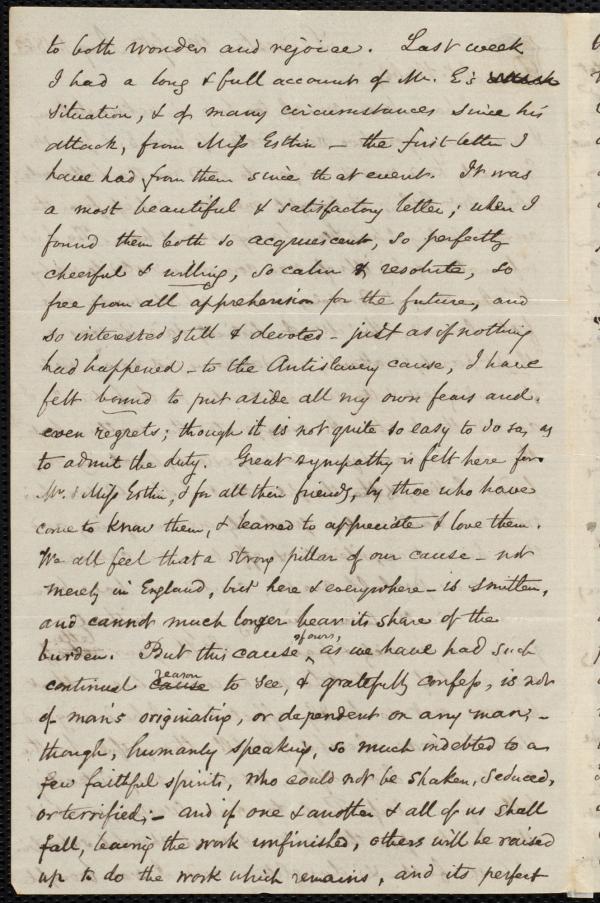 to both wonder and rejoice. Last week
I had a long & full account of Mr. E's
situation, & of many circumstances since his
attack, from Miss Estlin — the first letter I
have had from them since that event. It was
a most beautiful & satisfactory letter; when I
found them both so acquiescent, so perfectly
cheerful & willing, so calm & resolute, so
free from all apprehension for the future, and
so interested still & devoted - just as if nothing
had happened - to the Antislavery cause, I have
felt bound to put aside all my own fears and
even regrets; though it is not quite so easy to do so, as
to admit the duty. Great sympathy is felt here for
Mr. & Miss Estlin, & for all their friends, by those who have
come to know them, & learned to appreciate & love them.
We all feel that a strong pillar of our cause - not
merely in England, but here & everywhere - is smitten,
and cannot much longer bear its share of the
burden. But this cause of ours, as we have had such
continual cause reason to see, & gratefully confess, is not
of man's originating, or dependent on any man; -
though, humanly speaking, so much indebted to a
few faithful spirits, who could not be shaken, seduced,
or terrified; - and if one & another & all of us shall
fall, leaving the work unfinished, others will be raised
up to do the work which remains, and its perfect